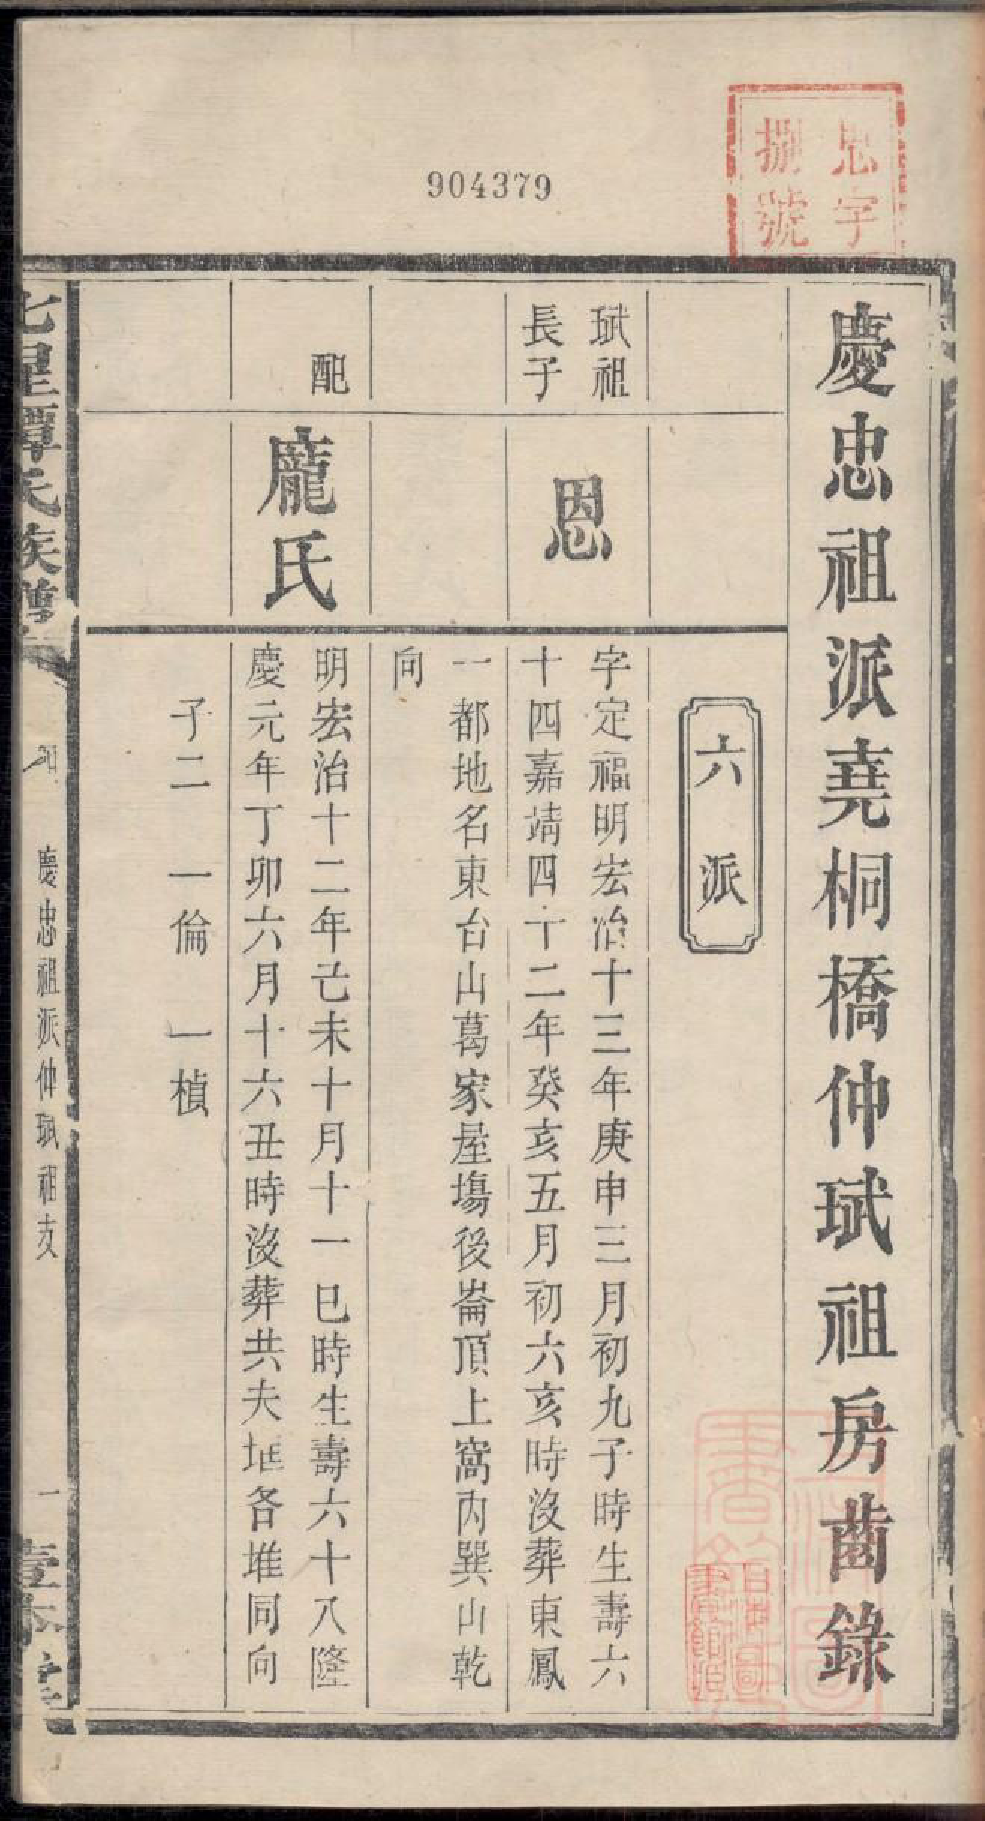 904379
忠字
捌號
慶忠祖派堯桐橋仲珷祖房齒錄
六派
珷祖
長子
恩
字定福明宏治十三年庚申三月初九子時生壽六
十四嘉靖四十二年癸亥五月初六亥時沒葬東鳳
一都地名東台山葛家屋塲後崙頂上窩內巽山乾
向
配
龐氏
明宏治十二年己未十月十一巳時生壽六十八隆
慶元年丁卯六月十六丑時沒葬共夫墟各堆同向
子二 一倫 一楨
七星譚氏族譜
慶忠祖派仲珷祖支
一
壹本堂